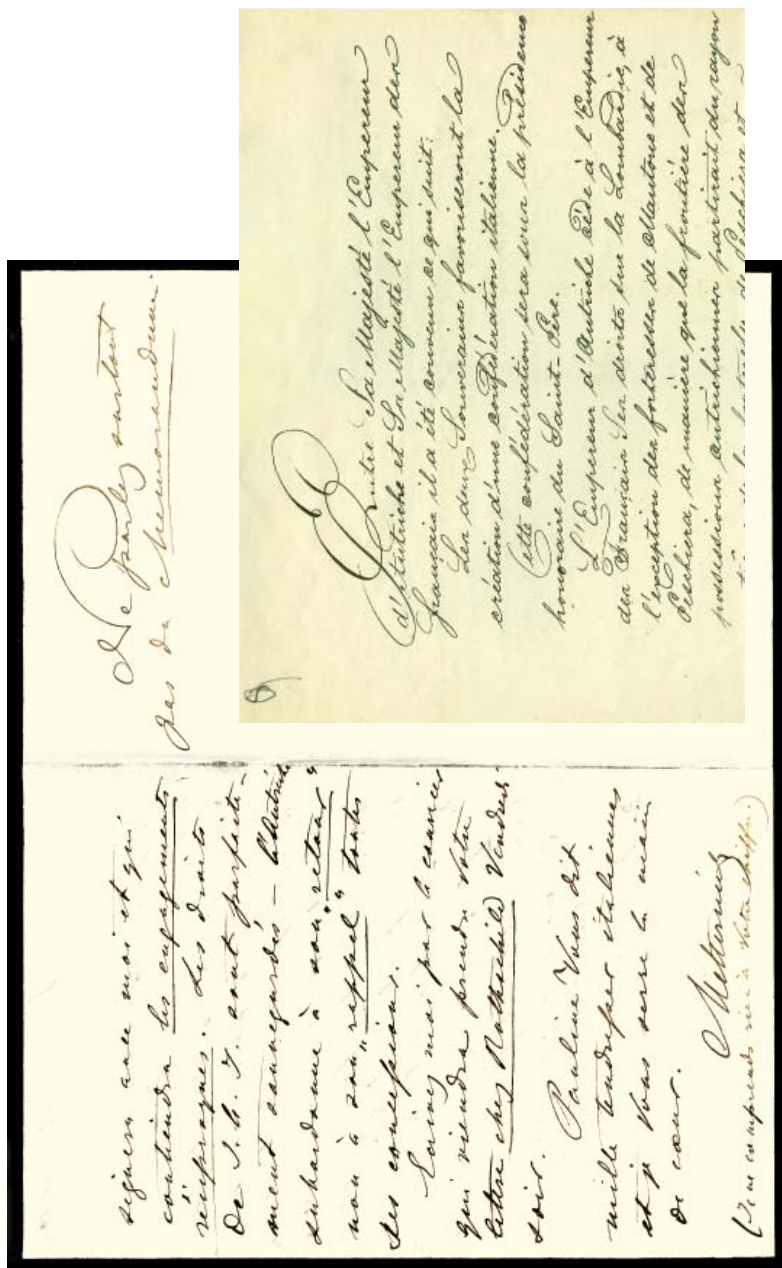 signera avec moi et qui
contiendra les engagements
réciproques. Les droits
de S. A. I. sont parfaite-
ment sauvegardés – l'Autriche
subordonne à son "retour"
non à son "rappel" toutes
ses concessions.
Ecrivez moi par le courrier
qui viendra prendre votre
lettre chez Rothschild Vendredi
soir.
Pauline Vous dit
mille tendresses italiennes
et je Vous serre la main
de cœur.
Metternich
(Je ne comprends rien à votre chiffre.)
Ne parlez surtout
pas du Memorandum.
Entre Sa Majesté l'Empereur
d'Autriche et Sa Majesté l'Empereur des
français il a été convenu ce qui suit:
Les deux Souverains favoriseront la
création d'une confédération italienne.
Cette confédération sera sous la présidence
honoraire du Saint-Père.
L'Empereur d'Autriche cède à l'Empereur
des Français Ses droits sur la Lombardie, à
l'exception des forteresses de Mantoue et de
Peschiera, de manière que la frontière des
possessions autrichiennes partirait du rayon
de la forteresse de Peschiera et